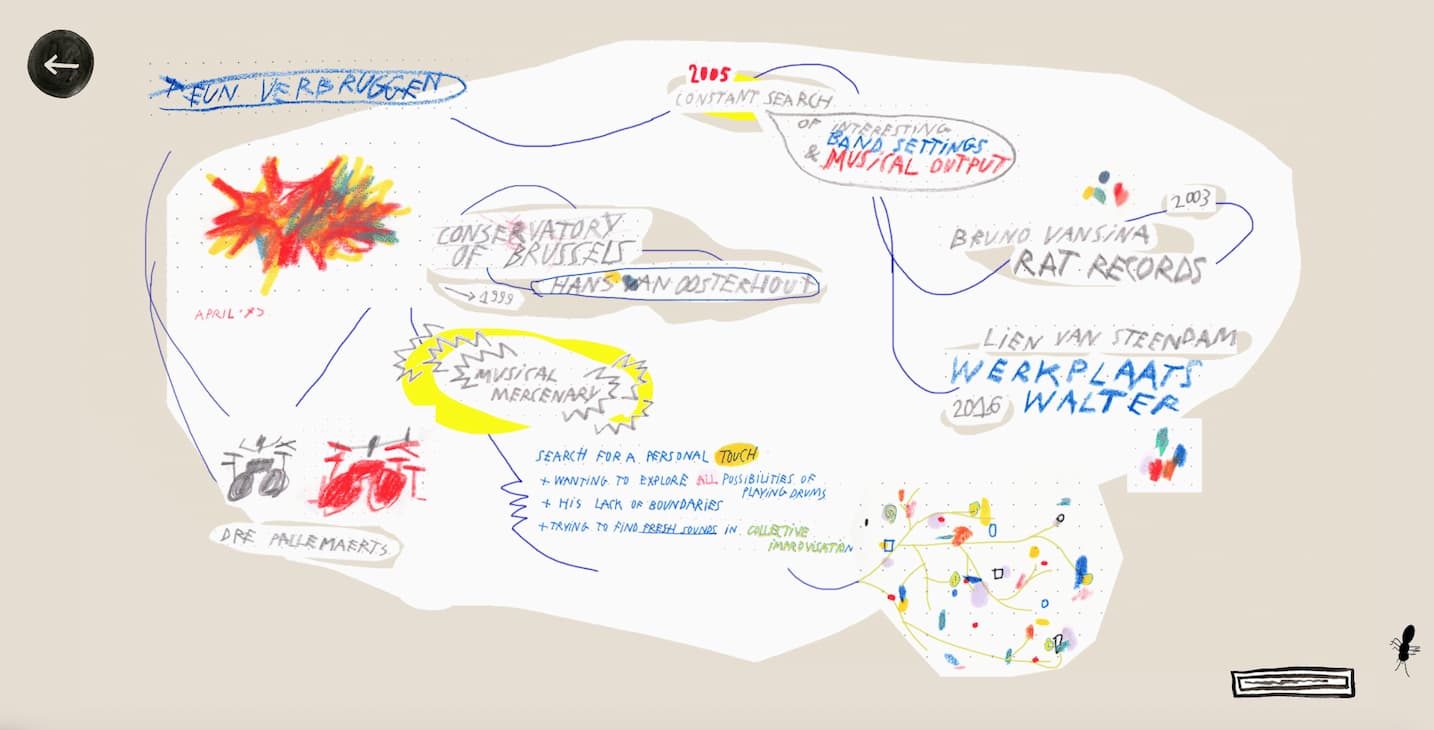 TEUN VERBRUGGEN
2005
CONSTANT SEARCH
OF INTERESTING
BAND SETTINGS
& MUSICAL OUTPUT
2003
BRUNO VANSINA
RAT RECORDS
CONSERVATORY
OF BRUSSELS
HANS VAN OOSTERHOUT
→1999
APRIL '
LIEN VAN STEENDAM
WERKPLAATS
2016 WALTER
MUSICAL
MERCENARY
SEARCH FOR A PERSONAL TOUCH
+ WANTING TO EXPLORE ALL POSSIBILITIES OF
PLAYING DRUMS
+ HIS LACK OF BOUNDARIES
+ TRYING TO FIND FRESH SOUNDS IN COLLECTIVE
IMPROVISATION
DRE PALLEMAERTS